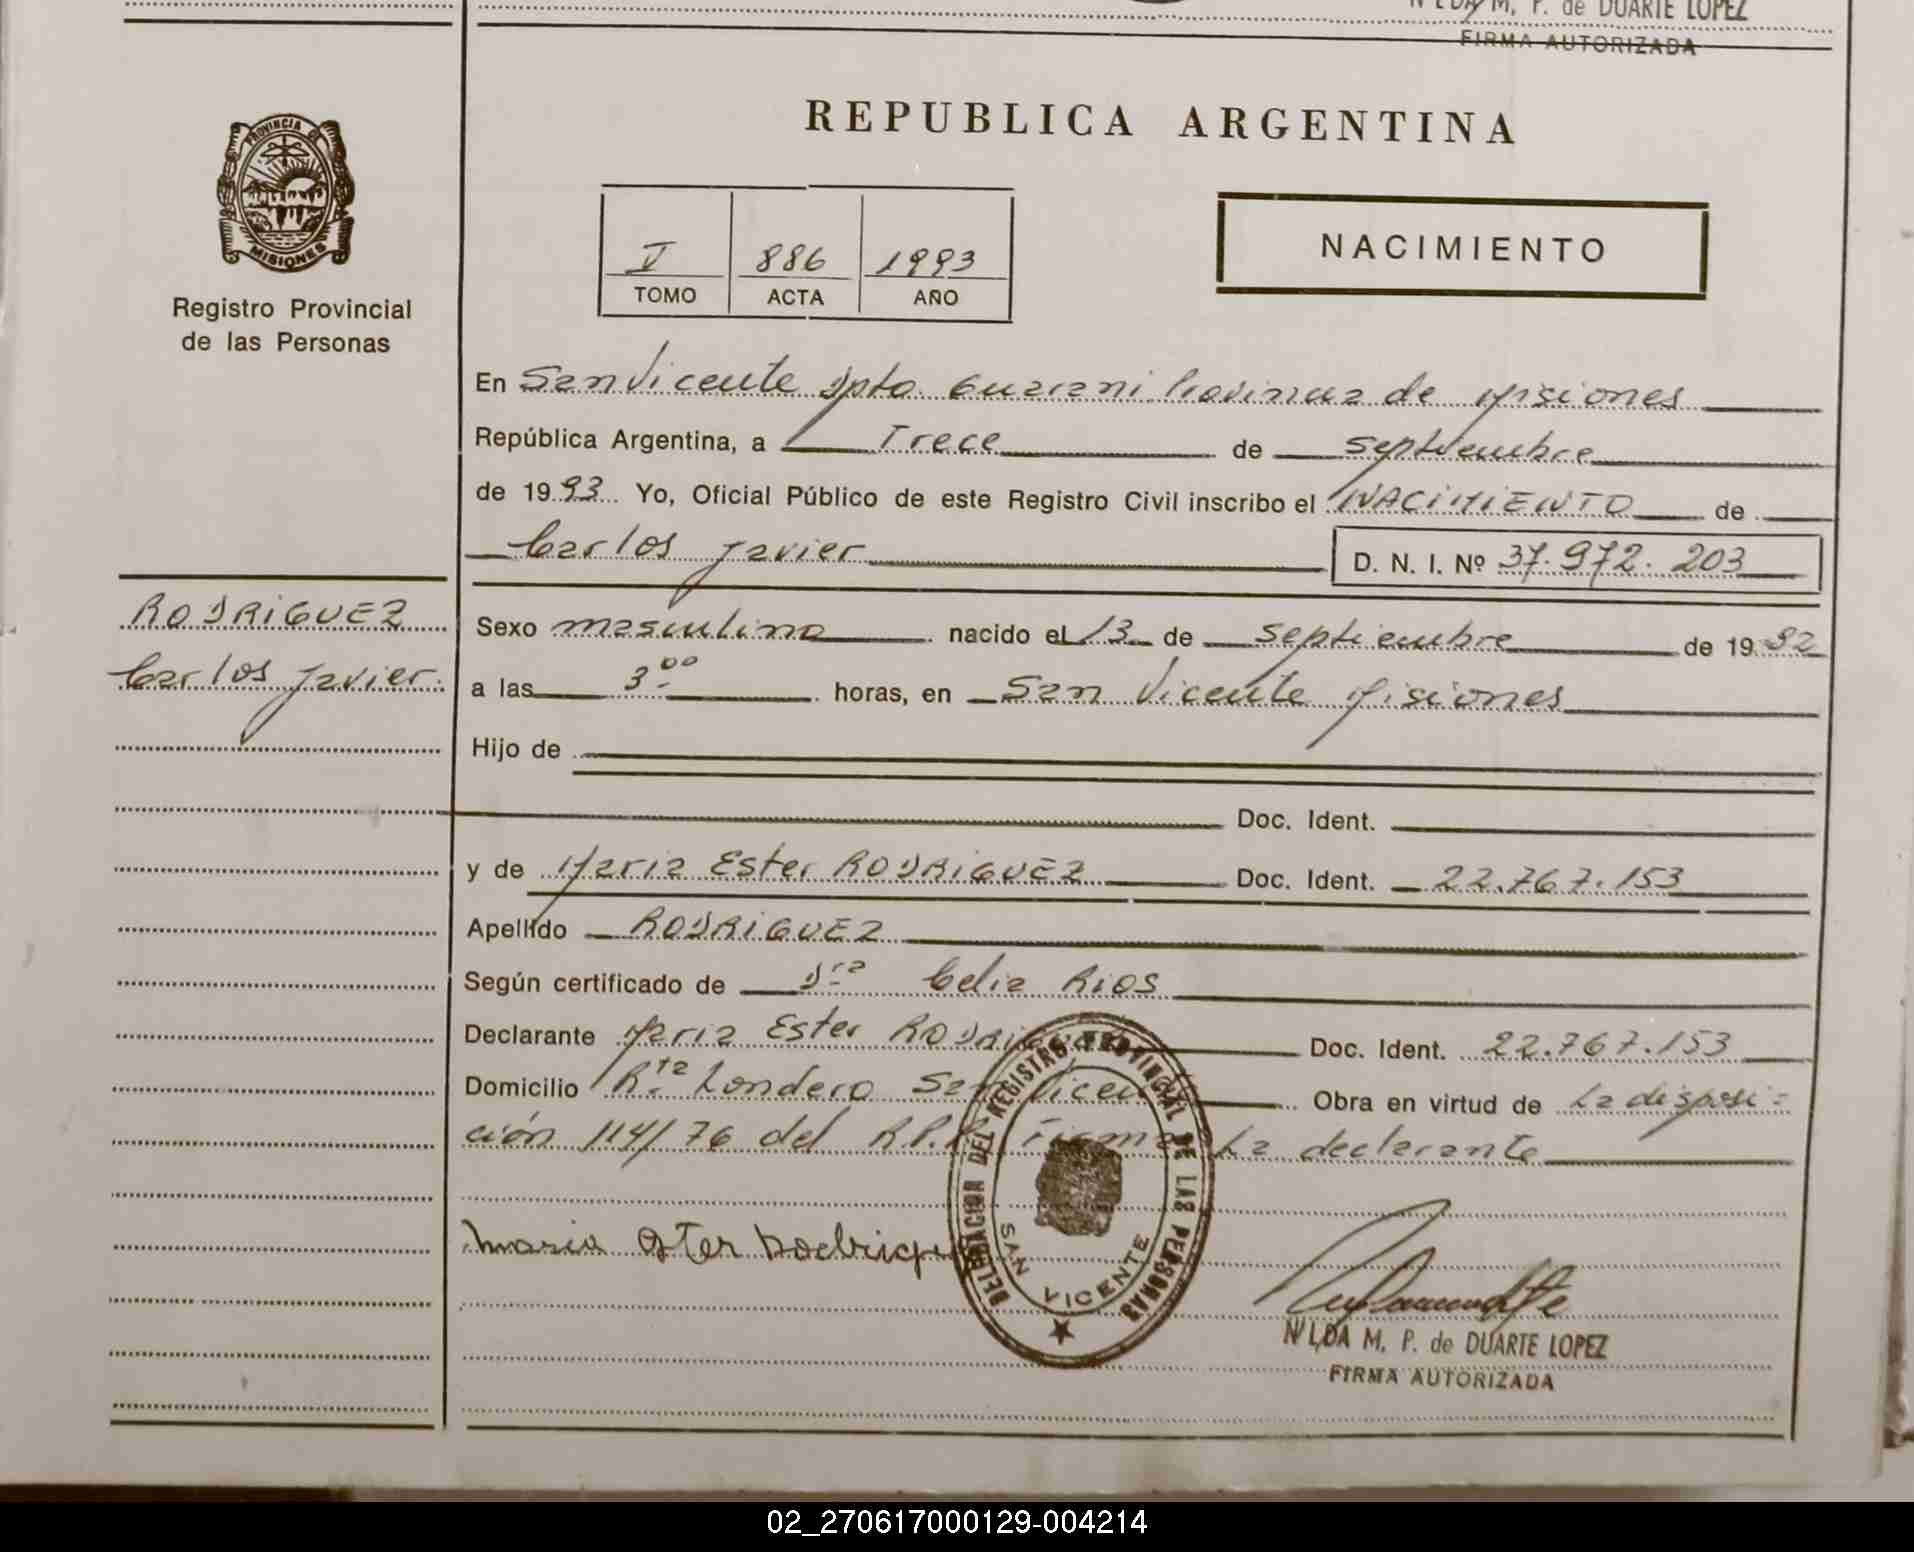 NILDA M. P. de DUARTE LOPEZ
FIRMA AUTORIZADA
PROVINCIA DE
MISIONES
Registro Provincial
de las Personas
REPUBLICA ARGENTINA
V 886 1993
TOMO ACTA AÑO
NACIMIENTO
En San Vicente Dpto. Guarani Provincia de Misiones
República Argentina, a Trece de Septiembre
de 1993 Yo, Oficial Público de este Registro Civil inscribo el NACIMIENTO de
Carlos Javier D. N. I. Nº 37.972.203
RODRIGUEZ
Carlos Javier.
Sexo masculino nacido el 13 de Septiembre de 1992
a las 3.00 horas, en San Vicente Misiones
Hijo de
Doc. Ident.
y de Maria Ester RODRIGUEZ Doc. Ident. 22.767.153
Apellido RODRIGUEZ
Según certificado de Dra Celia Rios
Declarante Maria Ester RODRIGUEZ Doc. Ident. 22.767.153
Domicilio Rta Londero San Vicente Obra en virtud de La disposi-
ción 114/76 del R.P.P. Firma La declarante
Maria Ester Rodrigues
DELEGACION DEL REGISTRO PROVINCIAL DE LAS PERSONAS
SAN VICENTE
NILDA M. P. de DUARTE LOPEZ
FIRMA AUTORIZADA
02_270617000129-004214